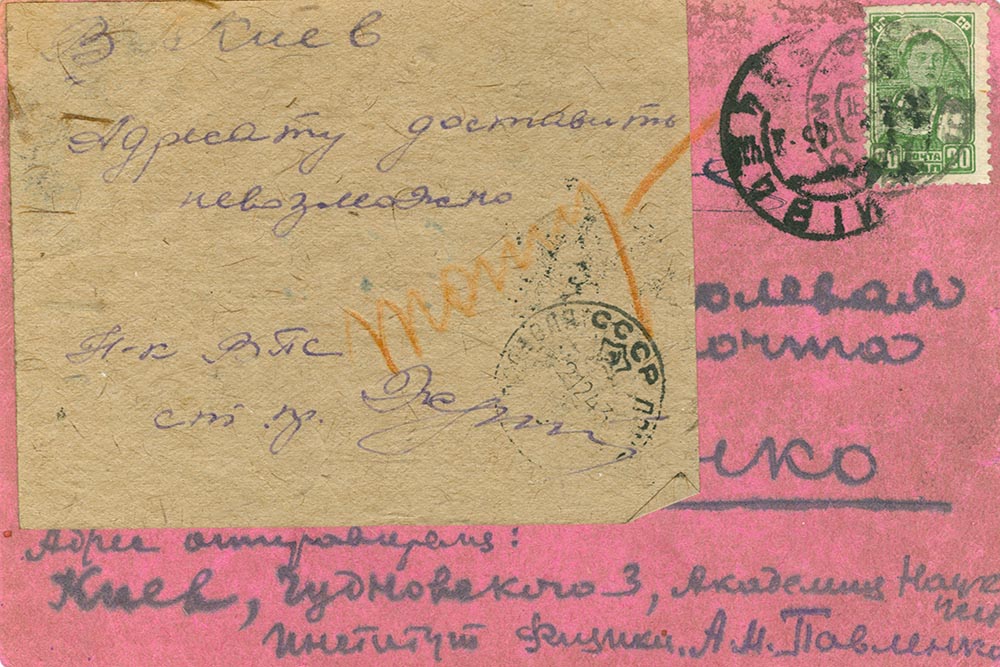 В Киев
Адресату доставить
невозможно
Н-к ВПС
ст. пр.
СССР
ПОЧТА
20 20
КИЇВ
олевая
очта
нко
Адрес отправителя:
Киев, Чудновского 3, Академия Наук
Институт Физики. А.М. Павленко